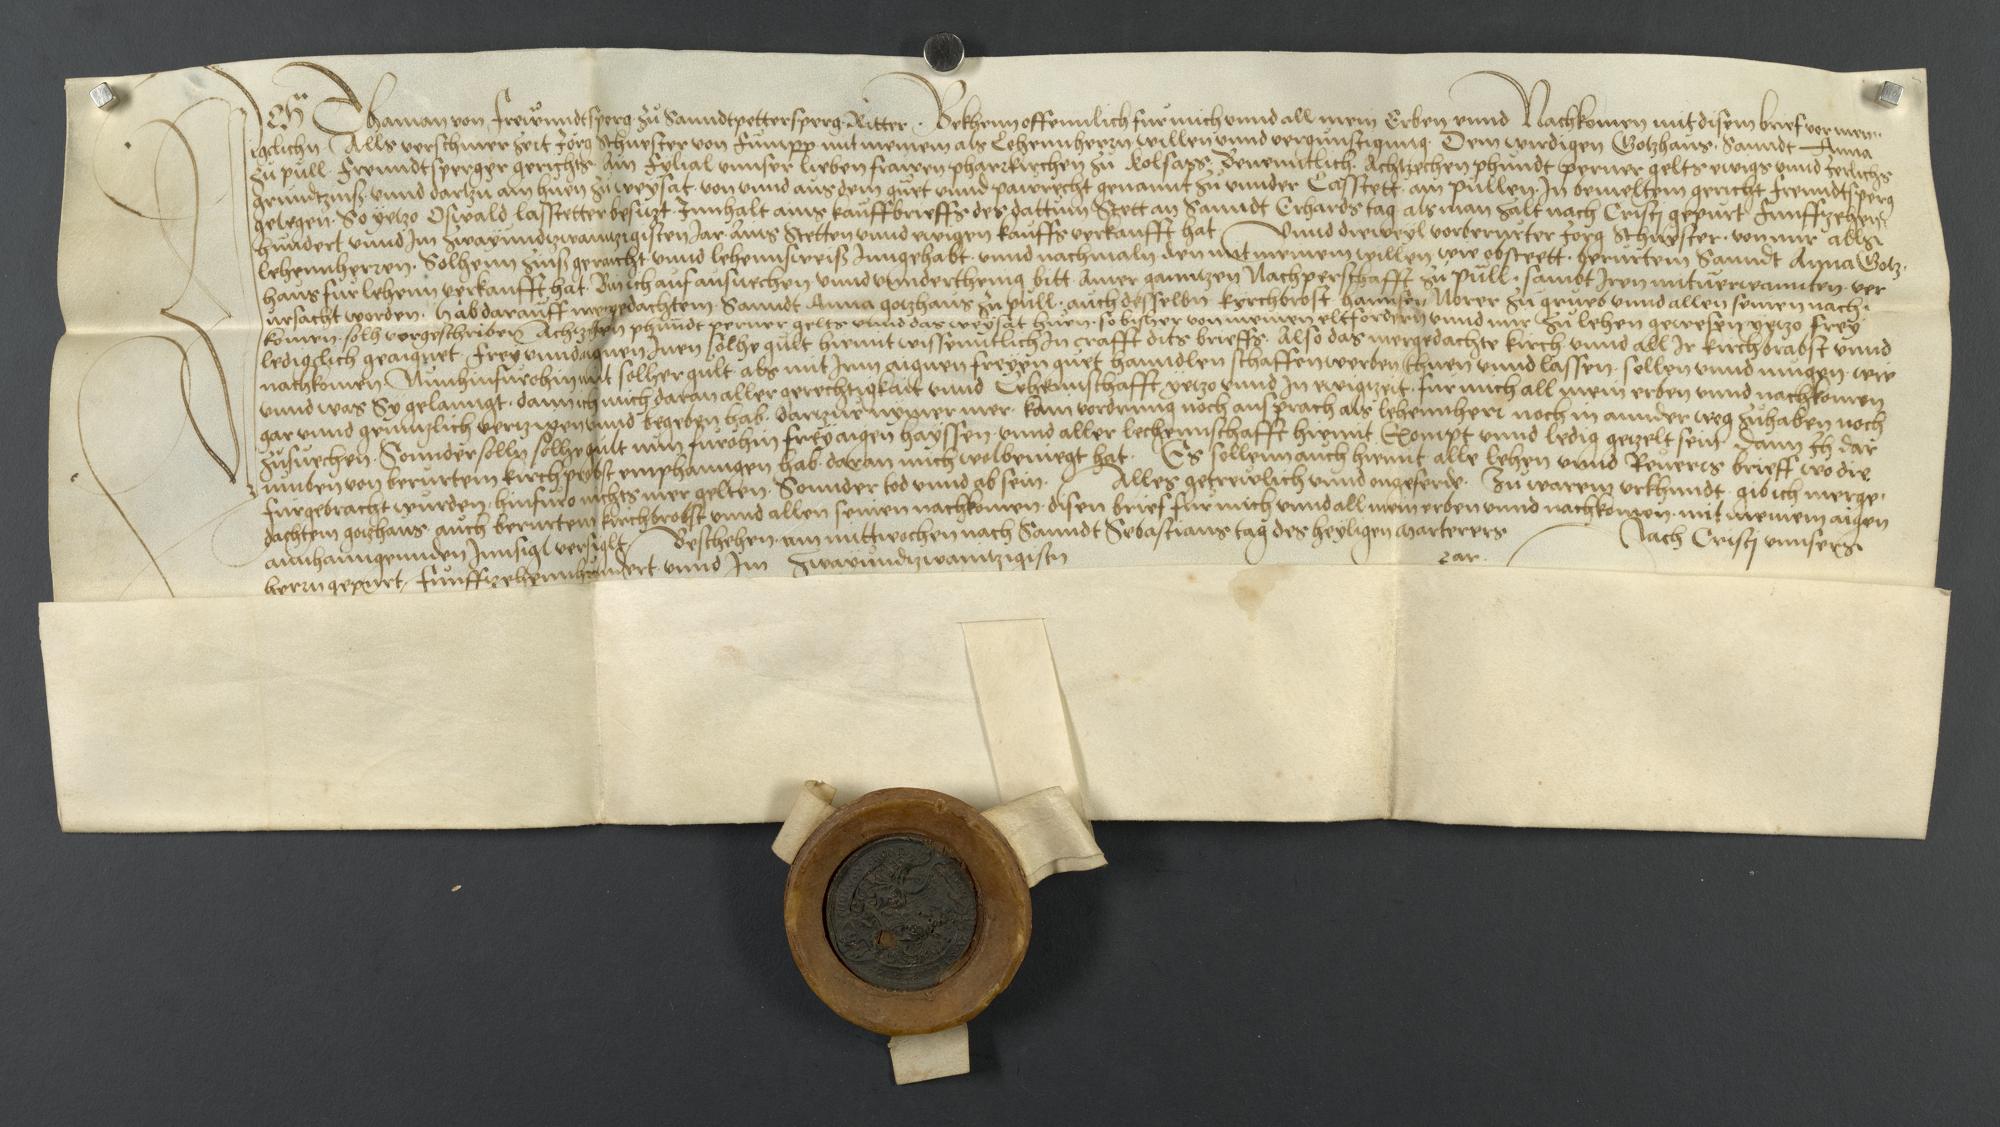 Ich Thaman von Freundtsperg zu Sanndtpettersperg Ritter. Bekhenn offennlich für mich unnd all mein Erben unnd Nachkomen mit disem brief vor men-
igclichn Alls verschiner Zeit Jörg Schuester von mit meinem als Lehennherrn willen unnd vergunstigung. Dem wirdigen Gotzhaus Sanndt Anna
zu pull Freundtsperger gerichts. Am Fylial unnser lieben frawen pharrkirchen zu Kolsass. Benenntlich. Achtzechen phundt perner gelts ewigs unnd Jerlichs
grundtzins. unnd dartzu ain huen zu weysat. von unnd aus dem guet unnd pawrecht genannt zu unnder Casstett. am pullen. In bemeltem gericht freundtsperg
gelegen. So yetzo Oswald lasstetter besitzt Innhalt ains kauffbrieffs des dattum Stett an Sanndt Erhards tag als man zalt nach Cristj gepurt Funffzehen-
hundert unnd Im zwayundtzwaintzigisten Jar. Ains Stetten unnd ewigen kauffs verkaufft hat Unnd dieweyl vorberurter Jorg Schuester. von mir als
lehennherren. Solhenn zinss gemacht unnd lehennsweiss Inngehabt. unnd nachmaln den mit meinem willen wie obsteett. berurtem Sanndt Anna Gotz-
haus fur lehenn verkaufft hat. Bin ich auf ansuechen unnd unnderthenig bitt. Ainer ganntzen Nachperschafft zu pull. sambt Iren mitverwannten. ver
ursacht worden. Hab darauff mergedachtem Sanndt Anna gotzhaus zu pull. auch desselbn kirchbrobst hannsen Morer zu grueb unnd allen seinen nach-
komen. solh vorgeschriben Achtzehen phundt perner gelts unnd das weysat huen. so bisher von meinen eltfordern unnd mir zu lehen gewesen yetzo frey
ledigclich geaignet. Frey unnd aignen Inen solhe gult hiemit wissenntlich In crafft dits brieffs. Also das mergedachte kirch unnd all Ir kirchbrabst unnd
nachkomen. Nunhinfurohin mit solher gult. als mit Irm aignen freyen guet hanndlen schaffen wenden thuen unnd lassen. sollen unnd mugen. wie
unnd was Sy gelanngt. dann ich mich daran aller gerechtigkait unnd Lehennschafft. yetzo unnd In ewigzeit. fur mich all mein erben unnd nachkomen
gar unnd genntzlich verzigen unnd begeben hab. Dartzue nymermer. kain vordrung noch ansprach als lehennherr noch in annder weg zu haben noch
zusuechen. Sonnder solln solhe gult nun furohin frey aigen hayssen. unnd aller lechennschafft hiemit. Exempt unnd ledig getzelt sein. Dann Ich dar
umben von berurtem kirchprobst emphanngen hab. daran mich wolbeniegt hat. Es sollenn auch hiemit. alle lehen unnd Revers brieff wo die
furgebracht wurden. hinfuro nichts mer gelten. Sonnder tod unnd ab sein. Alles getrewlich unnd ongeferde. Zu warem urkhundt. gib ich merge-
dachtem gotzhaus. auch berurtem kirchbrobst unnd allen seinen nachkomen. disen brief fur mich unnd all mein erben unnd nachkomen. mit meinem aigen
annhanngennden Innsigl versiglt Beschehen. am mittwochen nach Sanndt Sebastians tag des heyligen marterers Nach Cristj unnsers
herrn gepurt. Funffzehennhundert. unnd Im zwayundtzwaintzigistn Jar.